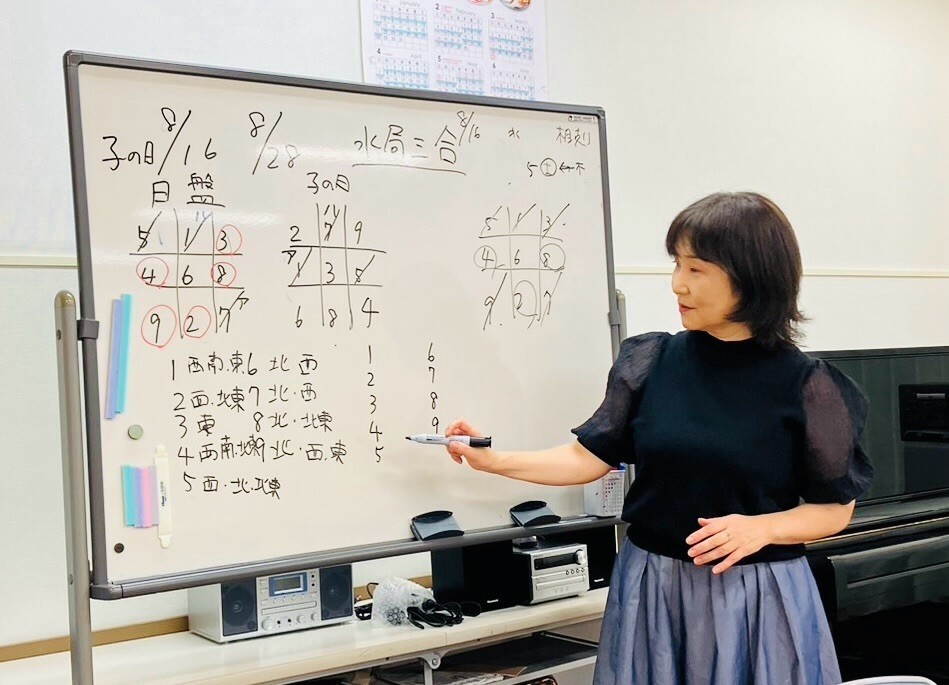 子の日 8/16 8/28 水局三合 8/16 水 相剋
5 土 ← 水
日盤 子の日
5 1 3
4 6 8
9 2 7
2 7 9
1 3 5
6 8 4
5 1 3
4 6 8
9 2 7
1 西南.東 6 北 西 1 6
2 西.北東 7 北・西 2 7
3 東 8 北・北東 3 8
4 西南.北東 9 北・西.東 4 9
5 西・北.北東 5